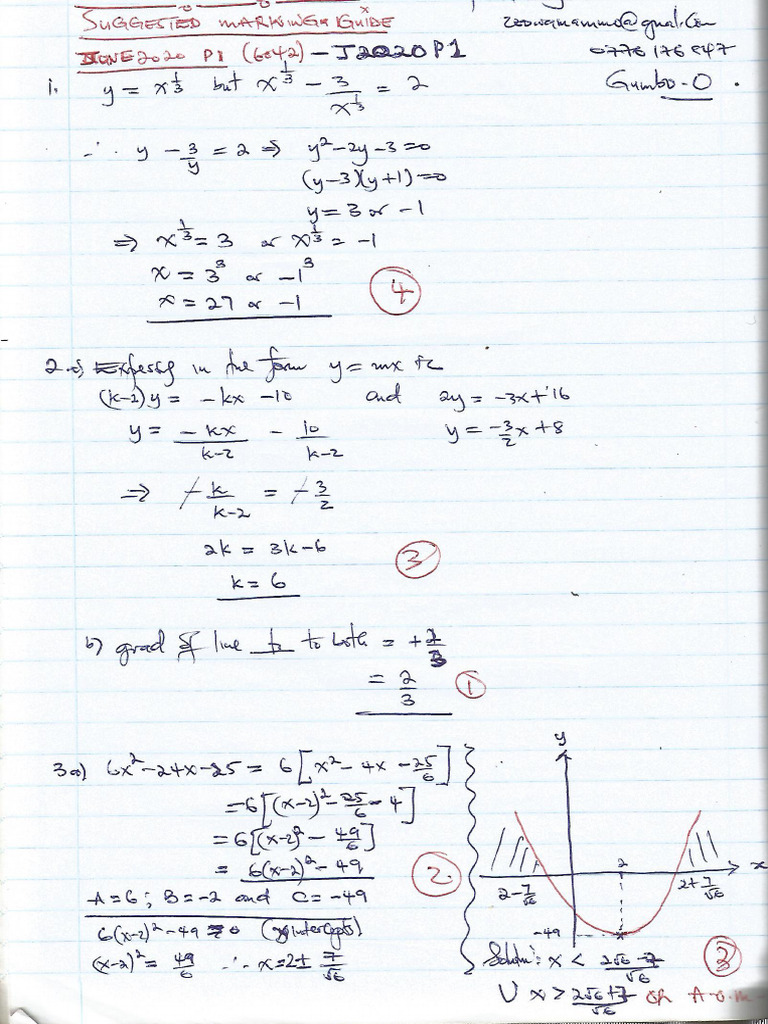 SUGGESTED MARKING GUIDE
JUNE 2020 P1 (6042) - J2020P1
0776176247
Gumbo-O.
1. y = x^{1/3} but x^{1/3} - 3/x^{1/3} = 2
∴ y - 3/y = 2 ⇒ y² - 2y - 3 = 0
(y-3)(y+1) = 0
y = 3 or -1
⇒ x^{1/3} = 3 or x^{1/3} = -1
x = 3³ or -1³
x = 27 or -1
4
2. a) Express in the form y = mx + c
(k-2)y = -kx - 10 and 2y = -3x + 16
y = -kx/(k-2) - 10/(k-2) y = -3/2 x + 8
⇒ -k/(k-2) = -3/2
2k = 3k - 6
k = 6
3
b) grad of line ⊥ to both = +2/3
= 2/3
1
3a) 6x² - 24x - 25 = 6[x² - 4x - 25/6]
= 6[(x-2)² - 25/6 - 4]
= 6[(x-2)² - 49/6]
= 6(x-2)² - 49
2
A = 6; B = -2 and C = -49
6(x-2)² - 49 = 0 (x intercepts)
(x-2)² = 49/6 ∴ x = 2 ± 7/√6
y
x
2
2 - 7/√6
2 + 7/√6
-49
Solution: x < (2√6 - 7)/√6
3
∪ x > (2√6 + 7)/√6 or A.o.m